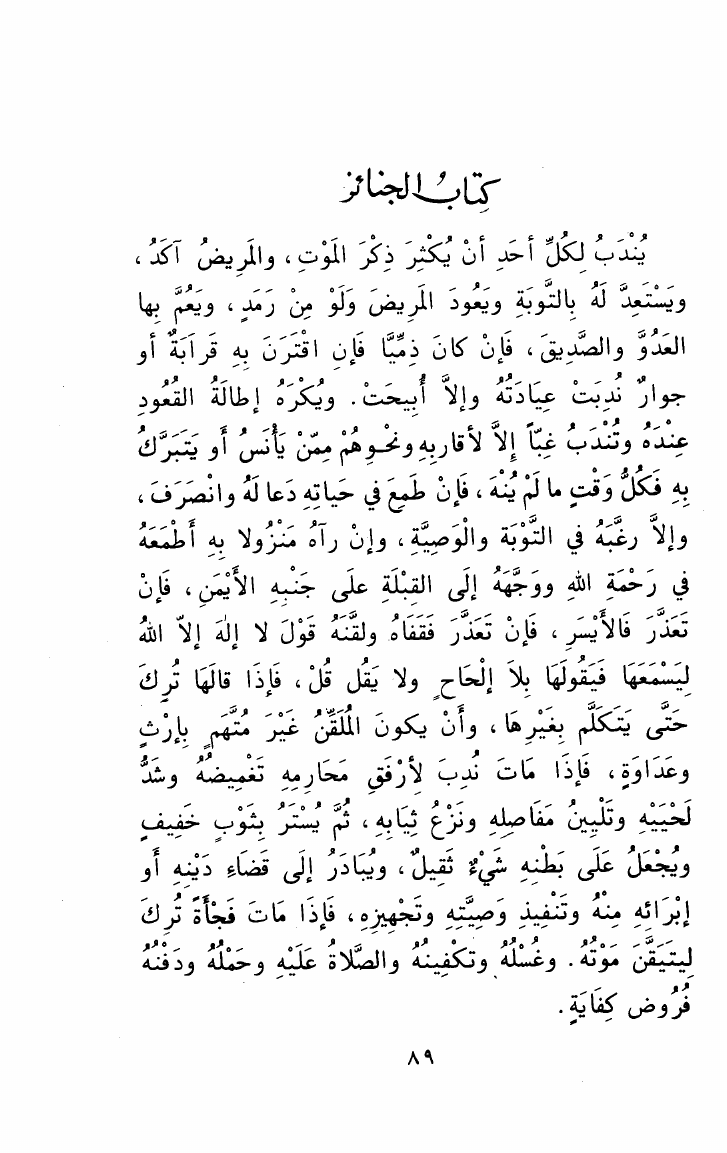 كِتَابُ الجنائز
يُنْدَبُ لِكُلِّ أحَدٍ أنْ يُكْثِرَ ذِكْرَ المَوْتِ، والمَرِيضُ آكَدُ،
ويَسْتَعِدَّ لَهُ بِالتَّوبَةِ ويَعُودَ المَرِيضَ وَلَوْ مِنْ رَمَدٍ، ويَعُمَّ بِها
العَدُوَّ والصَّدِيقَ، فَإنْ كانَ ذِمِّيًّا فَإنِ اقْتَرَنَ بِهِ قَرابَةٌ أو
جوارٌ نُدِبَتْ عِيَادَتُهُ وإلاَّ أُبِيحَتْ. ويُكْرَهُ إطالَةُ القُعُودِ
عِنْدَهُ وتُنْدَبُ غِبّاً إلاَّ لأقاربِهِ ونحْوِهُمْ مِمّنْ يَأْنَسُ أو يَتَبَرَّكُ
بِهِ فَكُلُّ وَقْتٍ ما لَمْ يُنْهَ، فَإنْ طَمِعَ في حَياتِهِ دَعا لَهُ وانْصَرَفَ،
وإلاَّ رغَّبَهُ في التَّوْبَة والْوَصِيَّةِ، وإنْ رآهُ مَنْزُولا بِهِ أطْمَعَهُ
في رَحْمَةِ اللهِ ووَجَّهَهُ إلَى القِبْلَةِ علَى جَنْبِهِ الأيْمَنِ، فَإنْ
تَعَذَّرَ فَالأيْسَرِ، فَإنْ تَعَذَّرَ فَقَفَاهُ ولقَّنَهُ قَوْلَ لا إلهَ إلاّ اللهُ
لِيَسْمَعَهَا فَيَقُولَهَا بِلاَ إلْحَاحٍ ولا يَقُل قُلْ، فَإذَا قالَهَا تُرِكَ
حَتَّى يَتَكلَّم بِغَيْرِهَا، وأَنْ يكونَ المُلَقِّنُ غَيْرَ مُتَّهمٍ بِإرْثٍ
وعَدَاوَةٍ، فَإذَا مَاتَ نُدِبَ لأرْفَقِ مَحَارِمِهِ تَغْمِيضُهُ وشَدُّ
لَحْيَيْهِ وتَلْيِينُ مَفَاصِلِهِ ونَزْعُ ثِيَابِهِ، ثُمَّ يُسْتَرُ بِثَوْبٍ خَفِيفٍ
ويُجْعَلُ عَلَى بَطْنِهِ شَيْءٌ ثَقِيلٌ، ويُبَادَرُ إلَى قَضَاءِ دَيْنِهِ أو
إبْرَائِهِ مِنْهُ وتَنْفِيذِ وَصِيَّتِهِ وتَجْهِيزِهِ، فَإذَا مَاتَ فَجْأَةً تُرِكَ
لِيتَيَقَّنَ مَوْتُهُ. وغُسْلُهُ وتكْفِينُهُ والصَّلاةُ عَلَيْهِ وحَمْلُهُ ودَفْنُهُ
فُرُوض كِفَايَةٍ.
٨٩